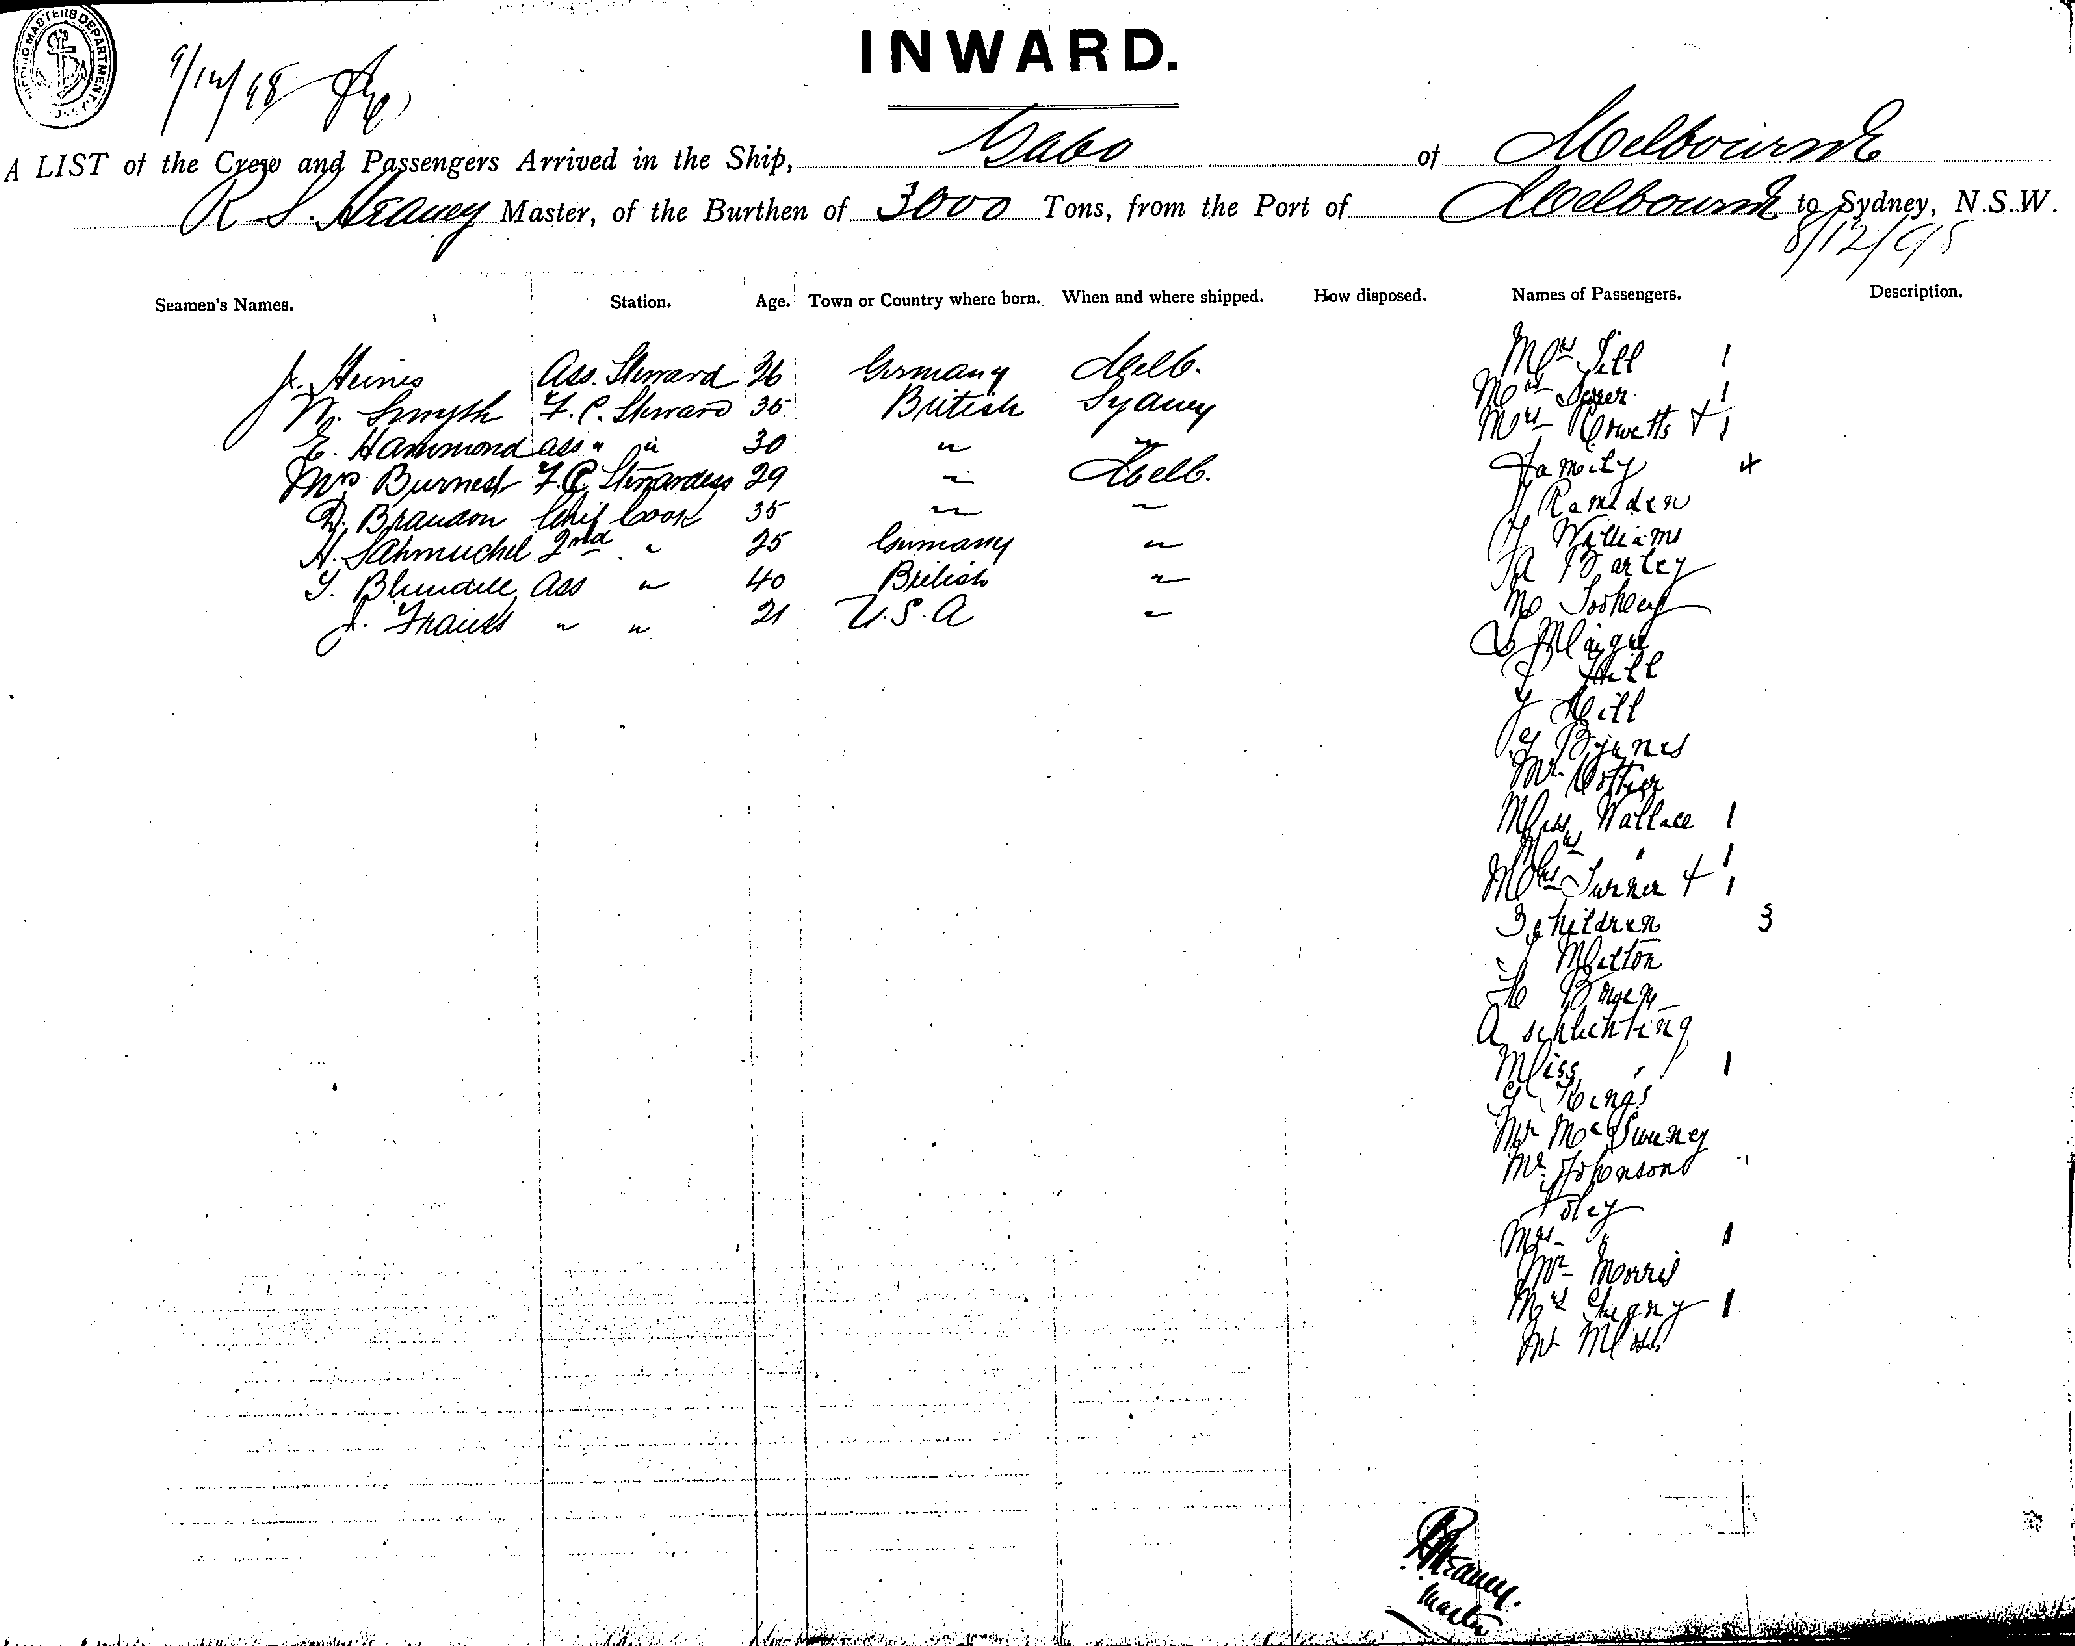 SHIPPING MASTERS DEPARTMENT
9/12/98
INWARD.
A LIST of the Crew and Passengers Arrived in the Ship, Gabo of Melbourne
R S. Heaney Master, of the Burthen of 3000 Tons, from the Port of Melbourne to Sydney, N.S.W.
8/12/98
Seamen's Names. Station. Age. Town or Country where born. When and where shipped. How disposed. Names of Passengers. Description.
J. Heines Ass. Steward 36 Germany Melb.
N. Smyth F.C. Steward 35 British Sydney
E. Hammond ass " " 30 " "
Mrs Burnest F.C. Stewardess 29 " Melb.
D. Brandon Chif Cook 35 " "
H. 2nd " 25 Germany "
T. Blundell Ass " 40 British "
J. " " 21 U.S.A "
Mrs 1
Mrs 1
Mrs + 1
Family 4
Ramsden
Williams
A Bartey
Hill
Hill
Byrnes
Mr. Cotter
Miss Wallace 1
Mrs " 1
Mrs Turner + 1
3 children 3
Melton
A schlichting
Miss " 1
Kings
Mr McSweeney
Mr. Johnson
Foley
Mrs " 1
Mr Morris
Mrs 1
Mr Moss
Heaney.
Master